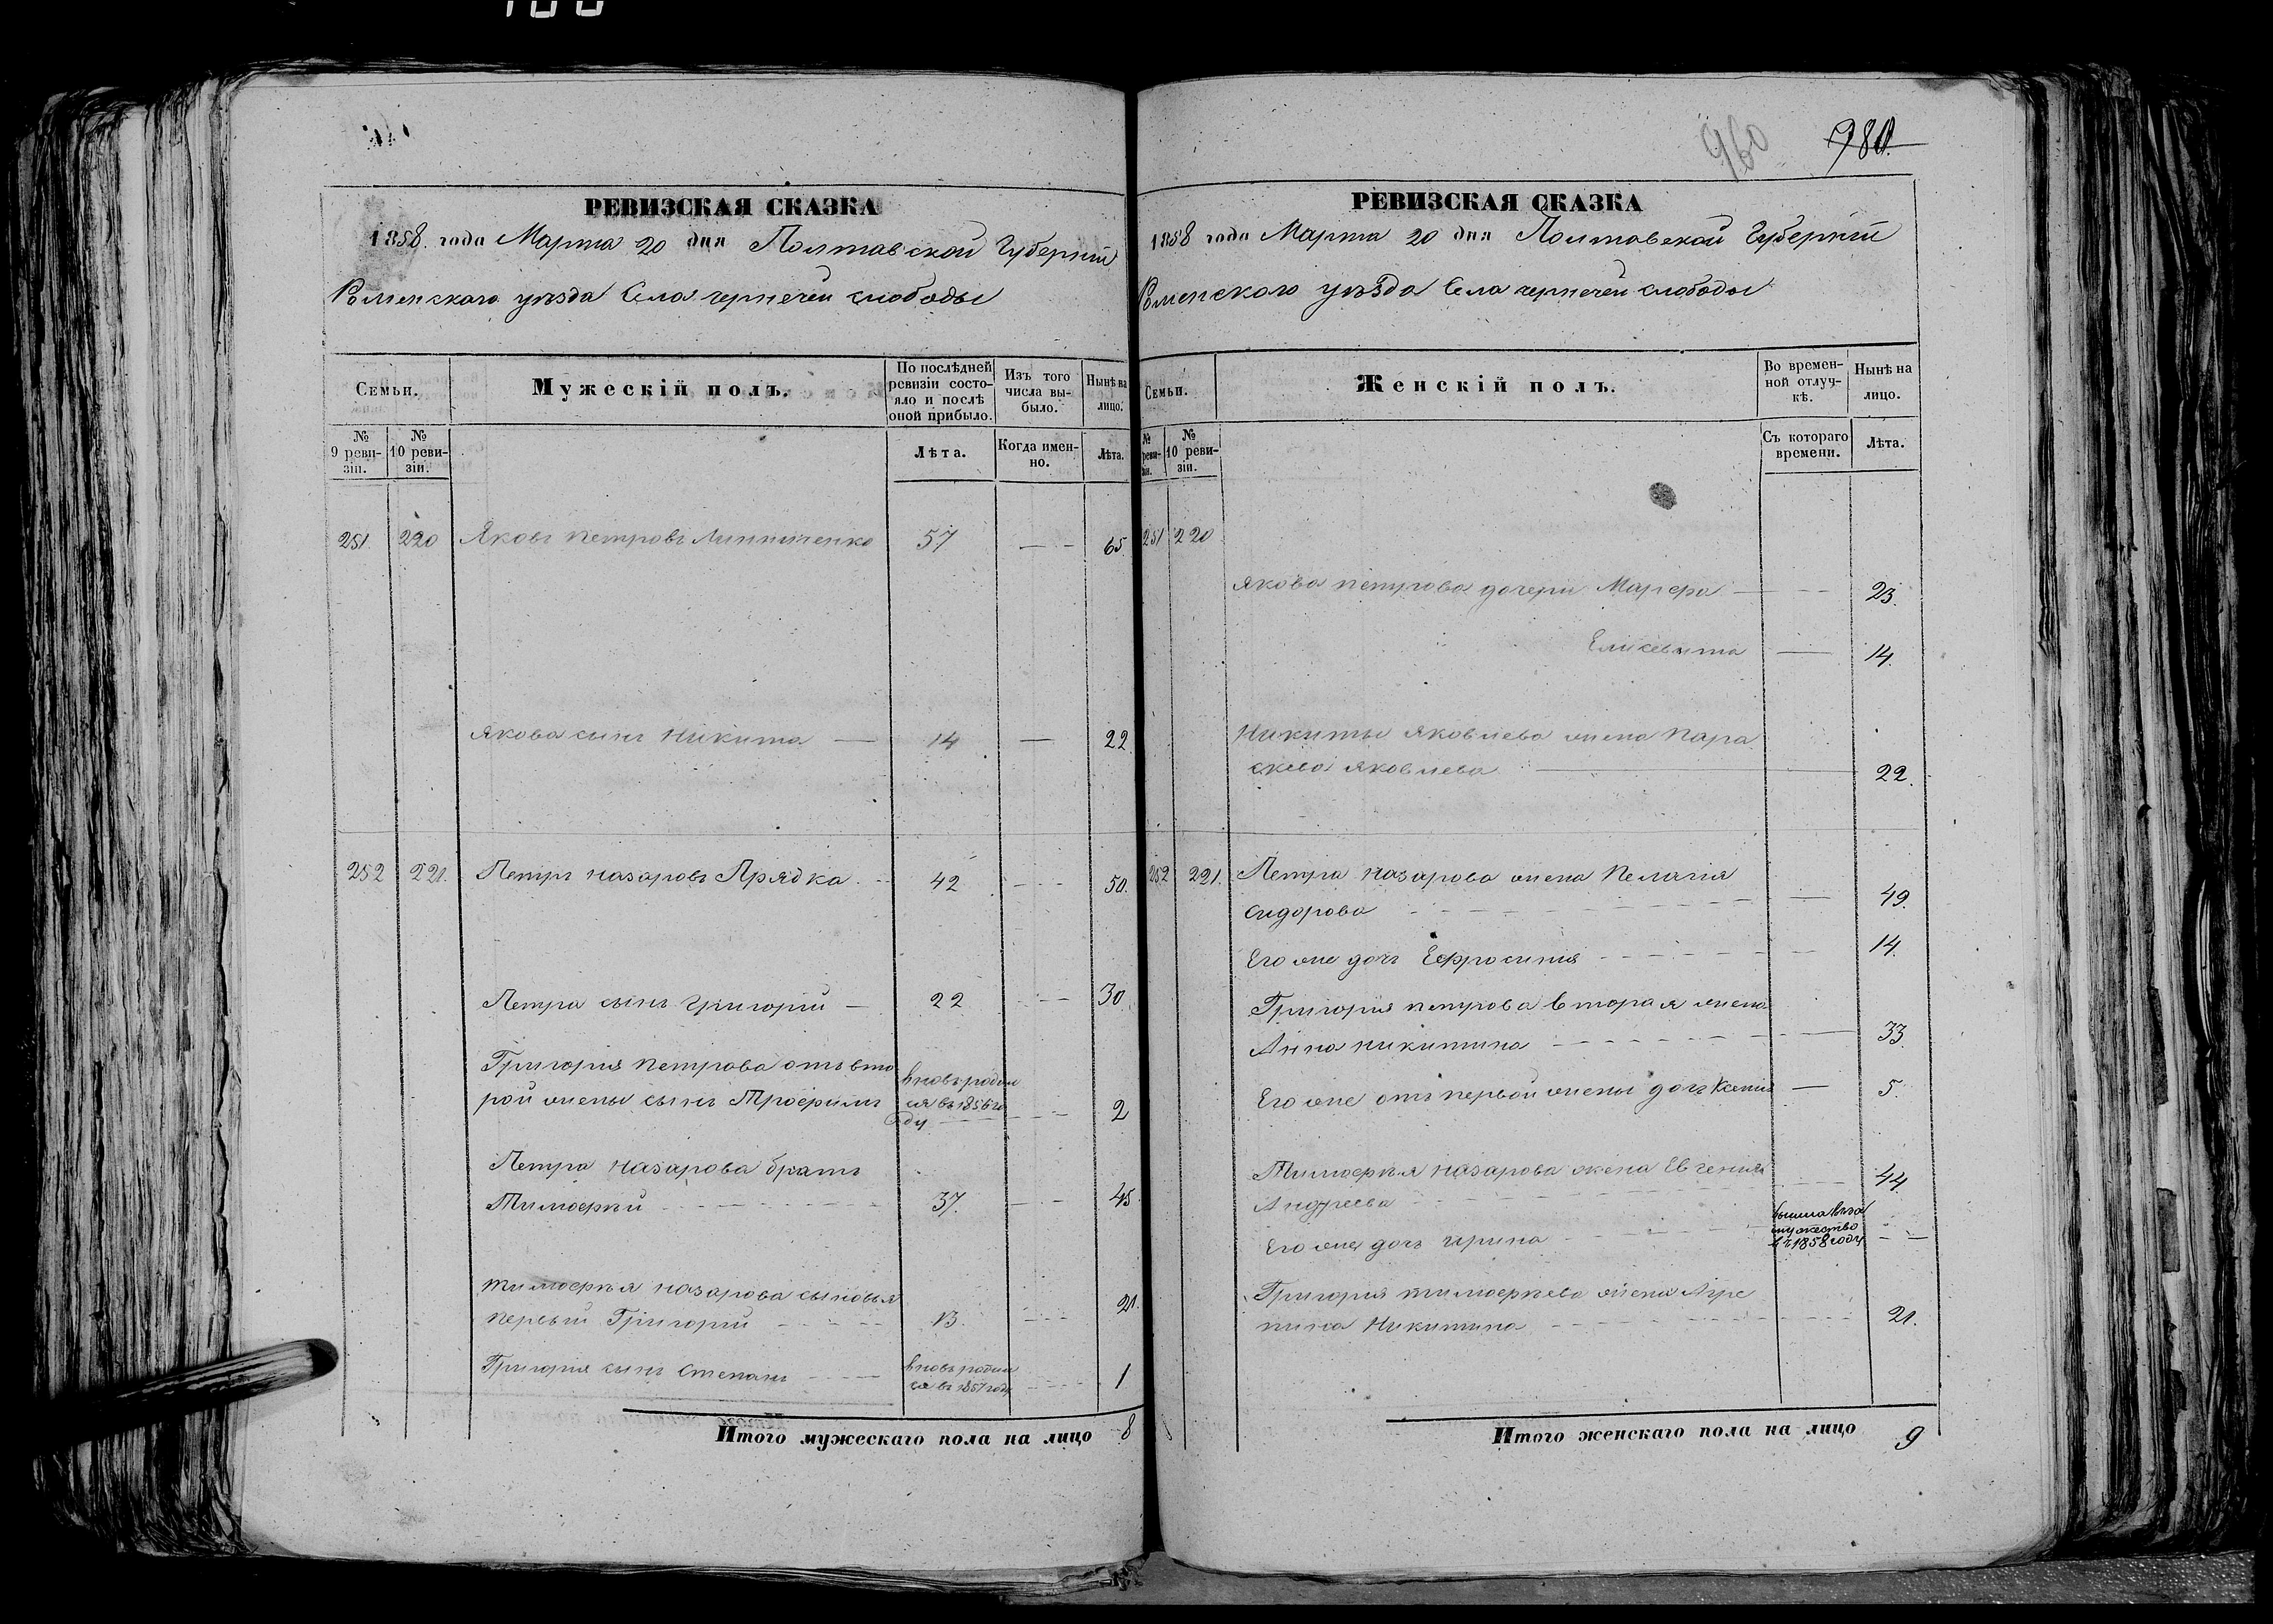 960 980.
РЕВИЗСКАЯ СКАЗКА
1858. года Марта 20 дня Полтавской Губернии
Роменского уѣзда Села чернечей слободы
Семьи.
Мужескій полъ.
По послѣдней ревизіи состояло и послѣ оной прибыло.
Изъ того числа выбыло.
Нынѣ на лицо.
№ 9 ревизіи.
№ 10 ревизіи.
Лѣта.
Когда именно.
Лѣта.
251. 220 Яковъ Петровъ 57 — 65.
Якова сынъ Никита — 14 — 22.
252 221. Петръ Назаровъ Прядка. 42 50.
Петра сынъ Григорій — 22 30.
Григорія Петрова отъ вто
рой жены сынъ Трофимъ
вновь родил
ся въ 1856 го
ду
2
Петра Назарова братъ
Тимофѣй 37. 45.
Тимофѣя Назарова сыновья
первый Григорій 13. 21.
Григорія сынъ Степанъ
вновь родил
ся въ 1857 году
1
Итого мужескаго пола на лицо 8
РЕВИЗСКАЯ СКАЗКА
1858 года Марта 20 дня Полтавской Губерніи
Роменского уѣзда Села чернечей слободы
Семьи.
Женскій полъ.
Во временной отлучкѣ.
Нынѣ на лицо.
№ реви-зіи.
№ 10 ревизіи.
Съ котораго времени.
Лѣта.
251 220
Якова Петрова дочери Марфа — 23.
Елисевета — 14.
Никиты Яковлева жена Пара
скева Яковлева 22.
252 221. Петра Назарова жена Пелагія
Сидорова 49.
Его же дочь Ефросинія 14.
Григорія Петрова вторая жена
Анна Никитина 33.
Его же отъ первой жены дочь Ксенія — 5.
Тимофѣя Назарова жена Евгенія
Андреева 44.
Его же дочь Ирина
вышла въ за
мужество
въ 1858 году
Григорія Тимофѣева жена Агре
пина Никитина 21.
Итого женскаго пола на лицо 9